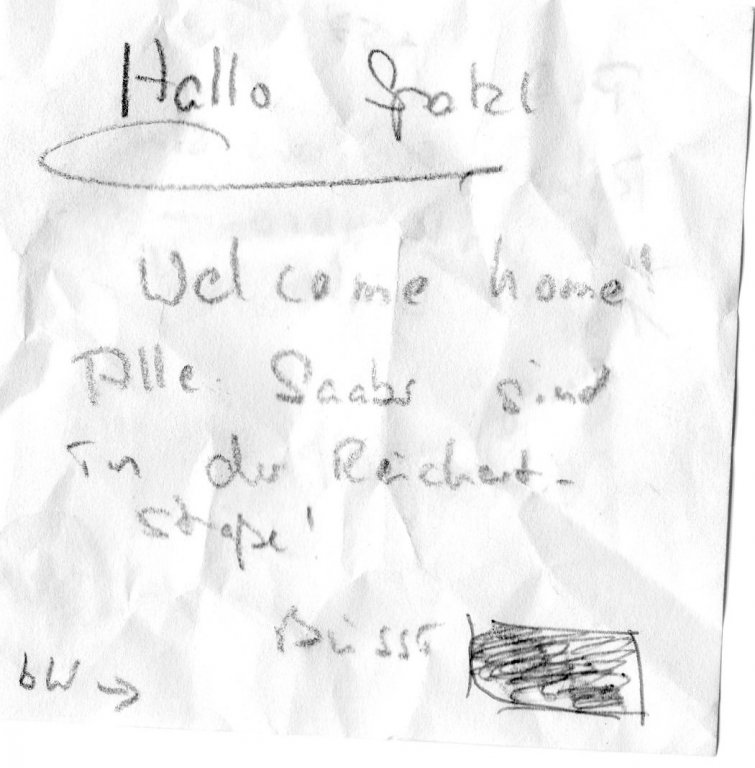 Hallo Spatzl
Welcome home!
Alle Saabs sind
in der Reichert-
straße!
Bussi
bW →